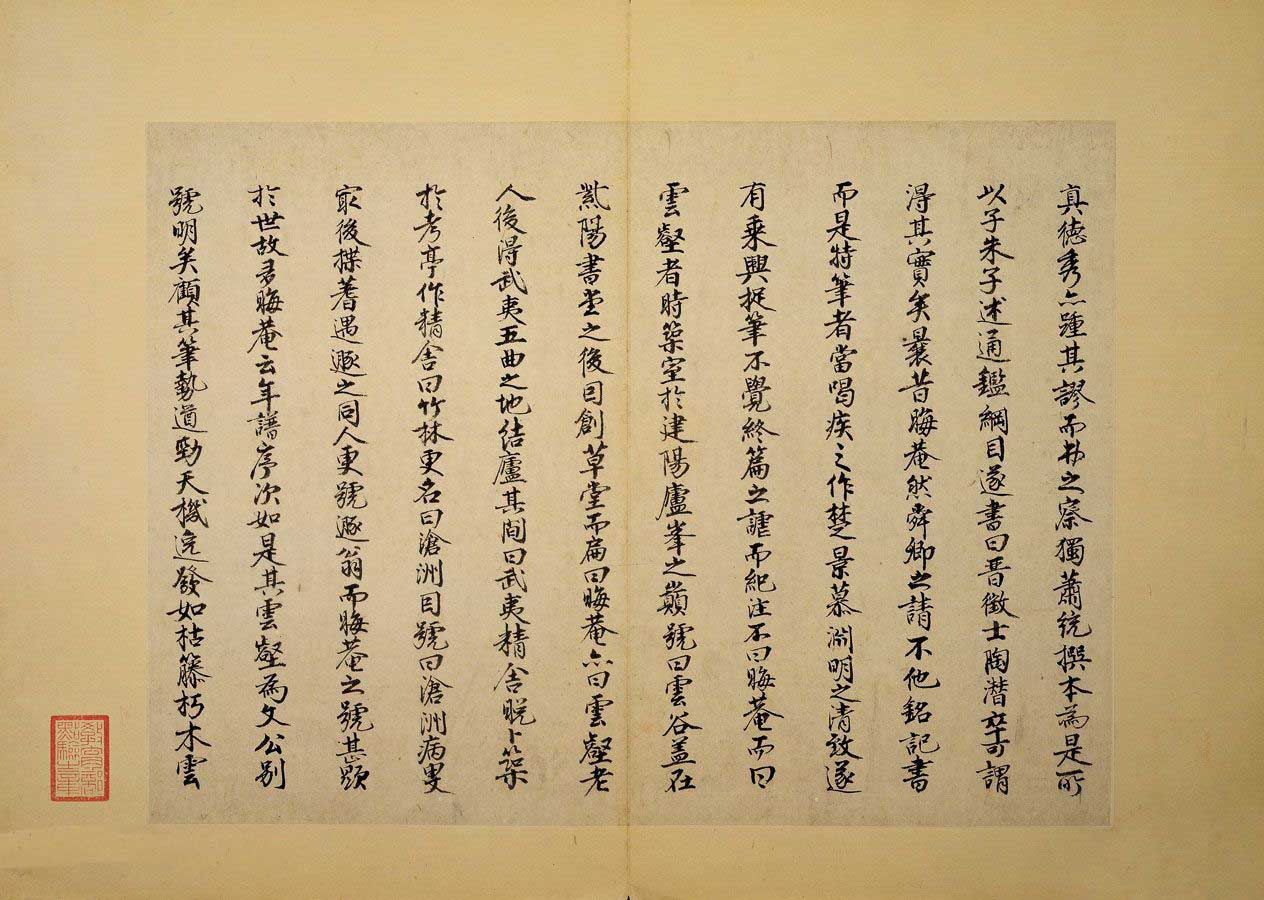 真德秀亦踵其謬而弗之察獨蕭統撰本為是所
以子朱子述通鑑綱目遂書曰晉徵士陶潛卒可謂
得其實矣曩昔晦菴然舜卿之請不他銘記書
而是特筆者當喝疾之作楚景慕淵明之清致遂
有乘興捉筆不覺終篇之謔而紀注不曰晦菴而曰
雲壑者時築室於建陽廬峯之巔號曰雲谷盖在
紫陽書堂之後因創草堂而扁曰晦菴亦曰雲壑老
人後得武夷五曲之地結廬其間曰武夷精舍晚卜築
於考亭作精舍曰竹林更名曰滄洲因號曰滄洲病叟
最後揲蓍遇遯之同人更號遯翁而晦菴之號甚顯
於世故多晦菴云年譜序次如是其雲壑為文公别
號明矣顧其筆勢遒勁天機逸發如枯籐朽木雲